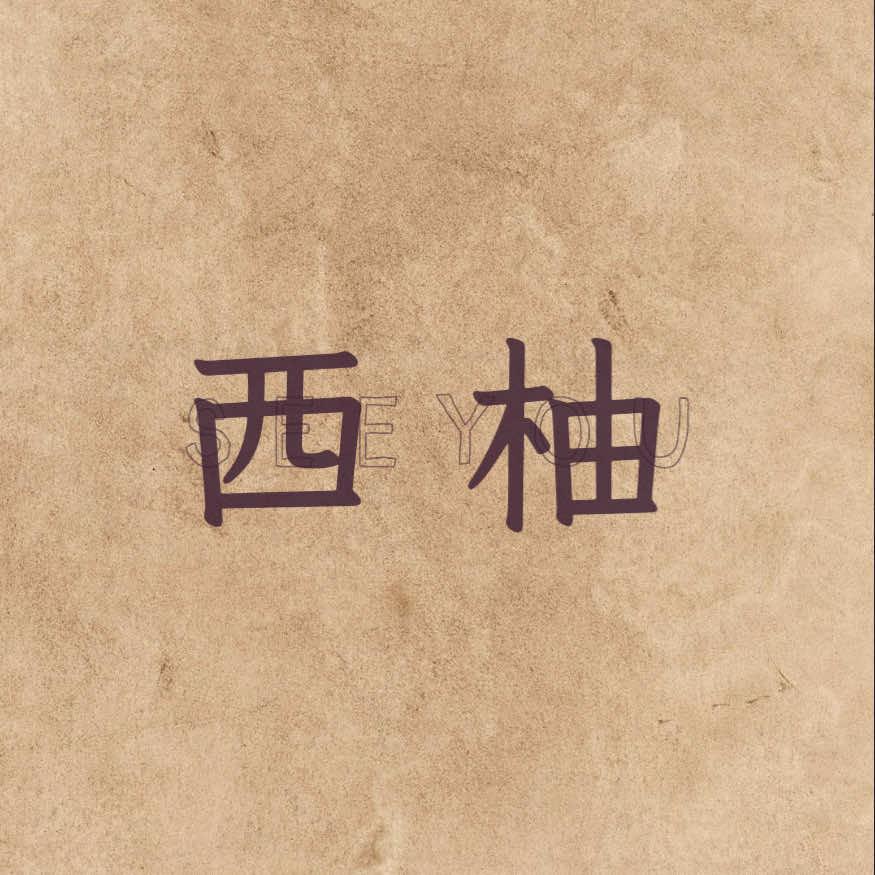 西柚
SEE YOU